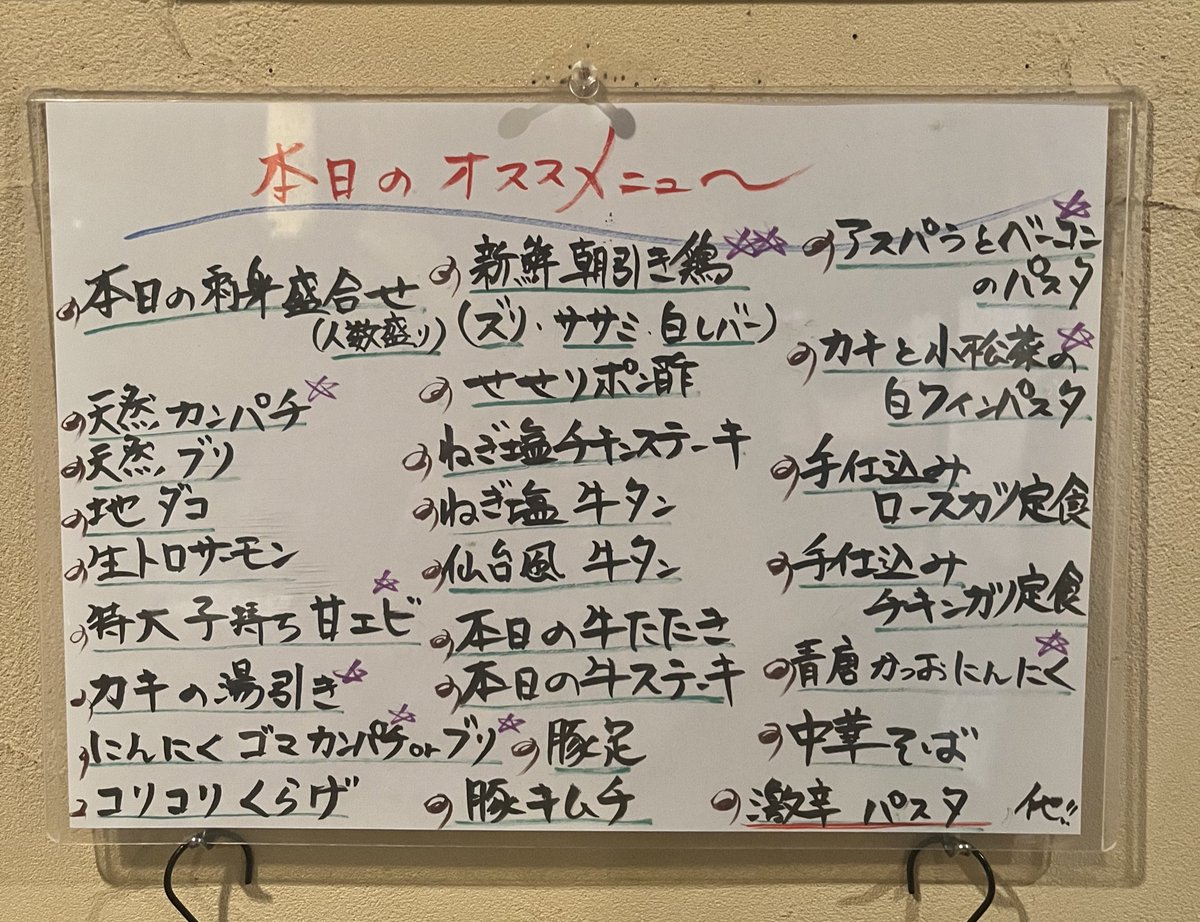 本日のオススメニュ〜
本日の刺身盛合せ
(人数盛り)
天然カンパチ
天然ブリ
地ダコ
生トロサーモン
特大子持ち甘エビ
カキの湯引き
にんにくゴマカンパチorブリ
コリコリくらげ
新鮮朝引き鶏
(ズリ・ササミ・白レバー)
せせりポン酢
ねぎ塩チキンステーキ
ねぎ塩牛タン
仙台風牛タン
本日の牛たたき
本日の牛ステーキ
豚足
豚キムチ
アスパラとベーコン
のパスタ
カキと小松菜の
白ワインパスタ
手仕込み
ロースカツ定食
手仕込み
チキンカツ定食
青唐かつおにんにく
中華そば
激辛パスタ 他!!